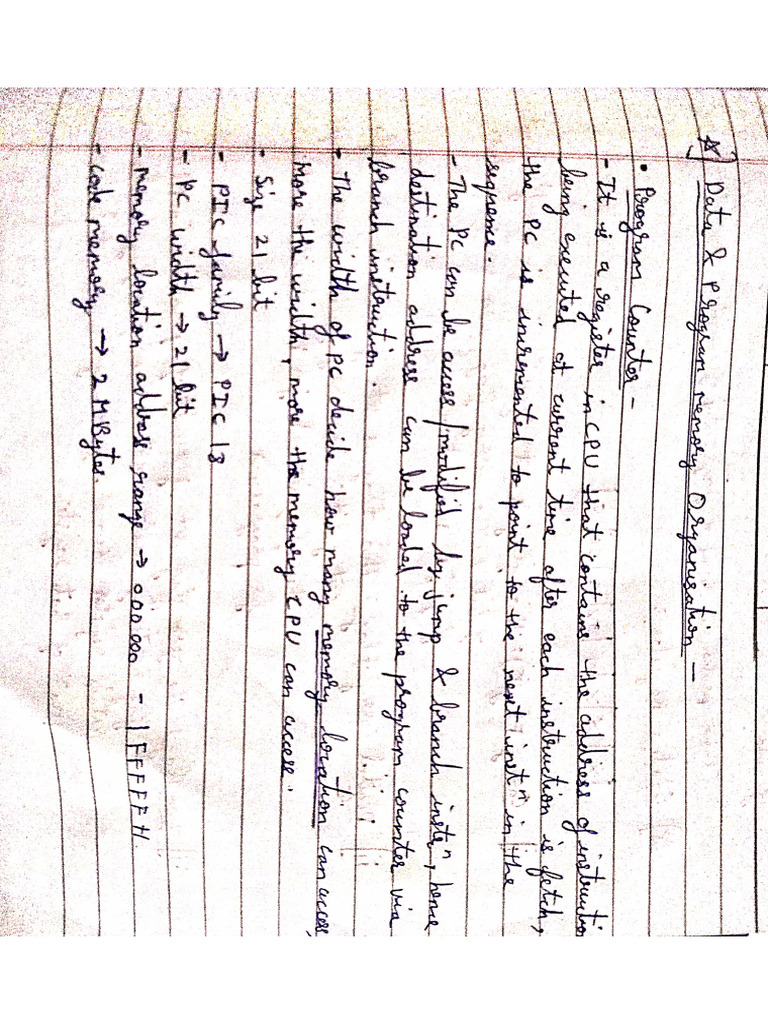 *] Data & Program memory Organisation -
• Program Counter -
- It is a register in CPU that contains the address of instruction
being executed at current time after each instruction is fetch,
the PC is incremented to point to the next instⁿ in the
sequence.
- The PC can be access/modified by jump & branch instrⁿ, hence
destination address can be loaded to the program counter via
branch instruction.
- The width of PC decide how many memory location can access,
more the width, more the memory CPU can access.
• Size 21 bit
- PIC family → PIC 18
- PC width → 21 bit
- memory location address range → 000000 - 1FFFFFH.
- code memory → 2 MBytes.